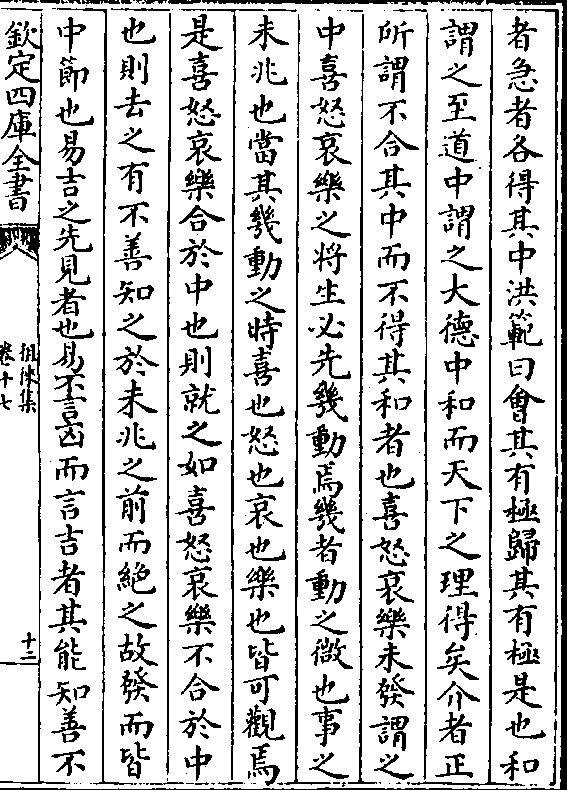 者急者各得其中洪範曰會其有極歸其有極是也和
謂之至道中謂之大德中和而天下之理得矣介者正
所謂不合其中而不得其和者也喜怒哀樂未發謂之
中喜怒哀樂之將生必先幾動焉幾者動之微也事之
未兆也當其幾動之時喜也怒也哀也樂也皆可觀焉
是喜怒哀樂合於中也則就之如喜怒哀樂不合於中
也則去之有不善知之於未兆之前而絶之故發而皆
中節也易吉之先見者也易不言凶而言吉者其能知善不
欽定四庫全書
徂徠集
卷十七
十二